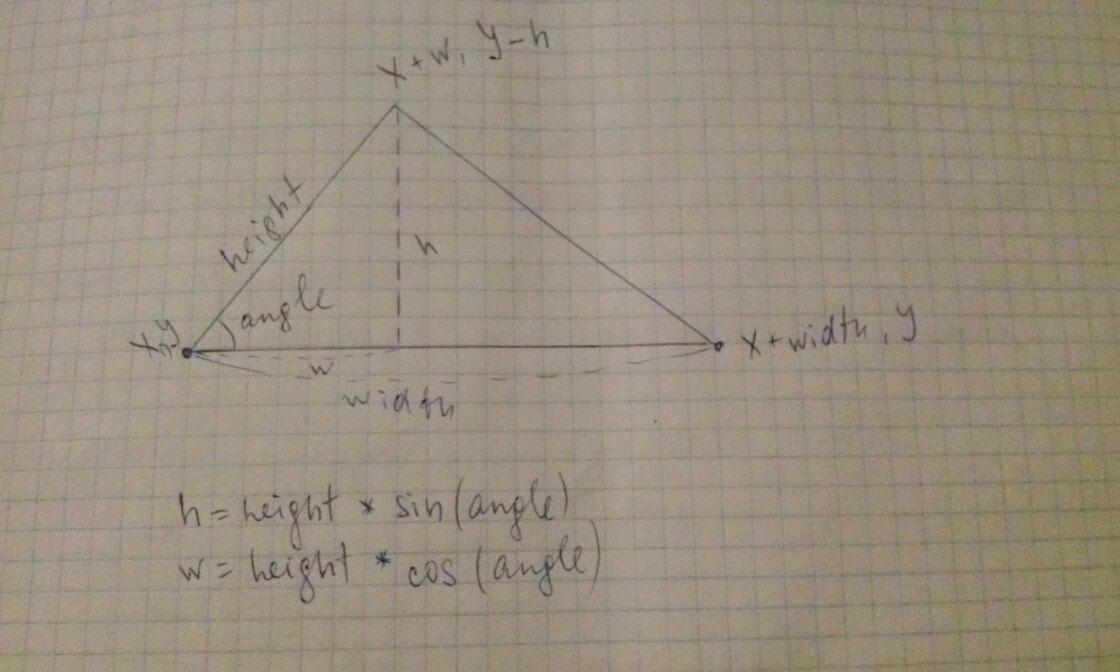 x+w, y-h
height
h
angle
x,y
x+width, y
w
width
h = height * sin(angle)
w = height * cos(angle)